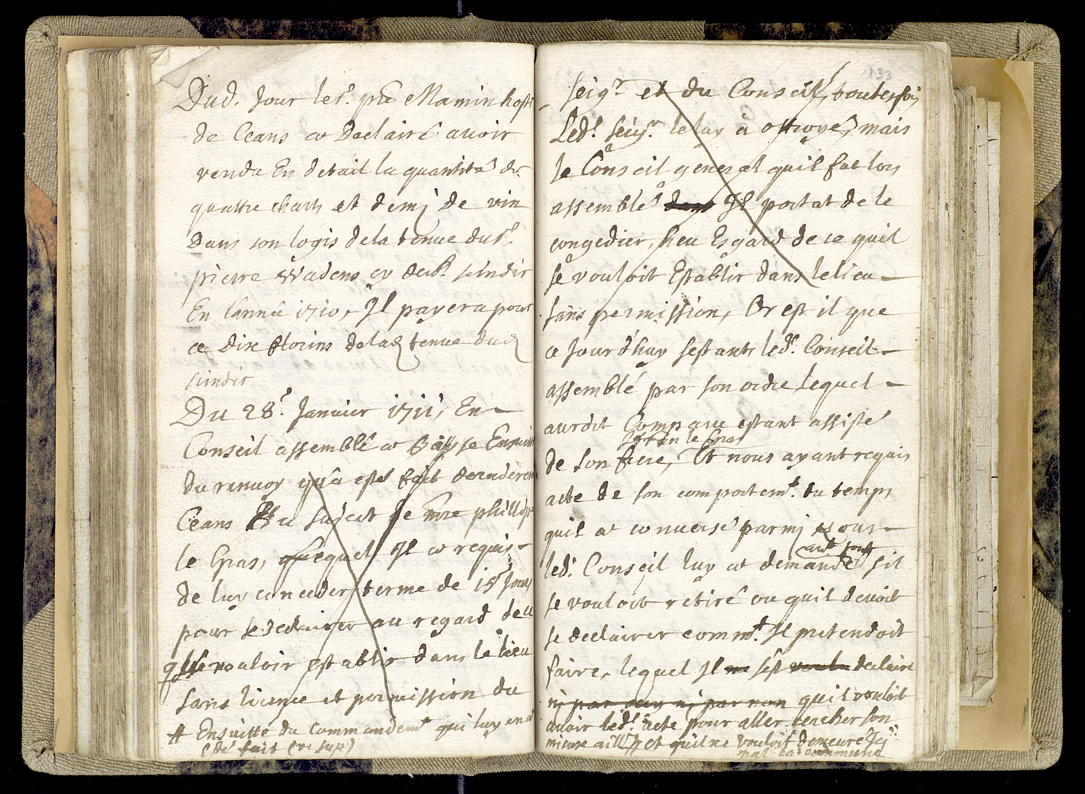 Dud. Jour les.r pre Mamin hoste
de Ceans a Declairé avoir
vendu En detail la quantité de
quattre chars et demj de vin
Dans son logis de la tenue du Sr.
pierre
En l'année 1710, Jl payera pour
ce dix florins de lad tenue dud
sindic
Du 28e. Janvier 1711, En
Conseil assemblé
du renvoy qu'a esté fait dernierem
Ceans Au suject de phillipe
le Gras, Jl a requis
de luy conceder terme de 15 Jours
pour se declairer au regard de
vouloir establir dans le lieu
sans licence et permission du
# Ensuitte du commandemt qui luy en
Esté fait (vi sup)
133
Seigr. et du Conseil, toutesfois
Led.t Seigr. le luy a ottroyé, mais
le Conseil general quil fut lors
assemblé Jl portat de le
congedier, heu Esgard de ce quil
se vouloit Establir dans le lieu
sans permission, Or est il que
ce Jourd'huy sestant led.t Conseil
assemblé par son ordre, lequel
auroit Comparu estant assisté
le Gras
de son frere, Et nous ayant requis
acte de son comportemt. du temps
quil a conversé parmj nous
led.t Conseil luy a demandé sil
se vouloit retiré ou quil devoit
se declairer commt. Jl pretendoit
faire, lequel Jl sest voulu declairé
ni par ouy ni par non quil vouloit
avoir led.t acte pour aller cercher son
mieux et quil ne vouloit demeurer Jci